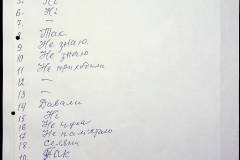 5. Ні
6. Ні
7. —
8. Так
9. Не знаю.
10. Не знаю
11. Не приходили
12. —
13. —
14. Давали
15. Ні
16. Не чула
17. Не пам'ятаю
18.
19. Так